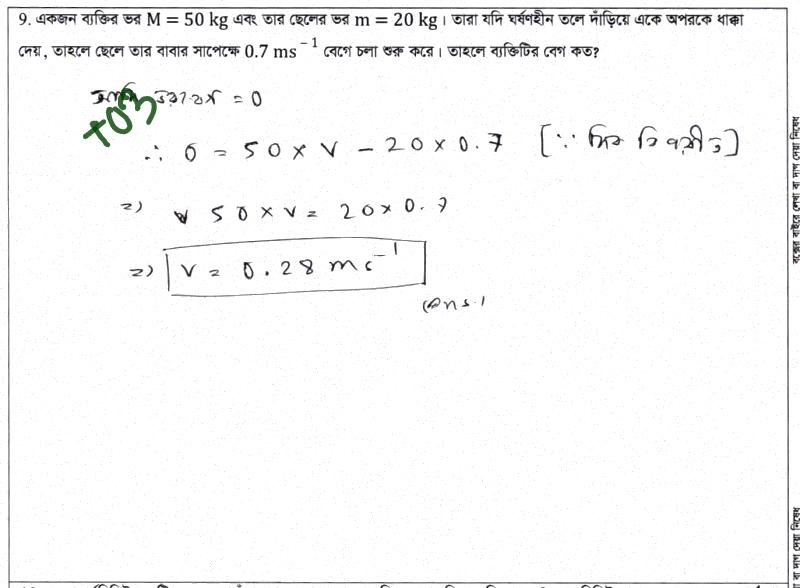 9. একজন ব্যক্তির ভর M = 50 kg এবং তার ছেলের ভর m = 20 kg। তারা যদি ঘর্ষণহীন তলে দাঁড়িয়ে একে অপরকে ধাক্কা
দেয়, তাহলে ছেলে তার বাবার সাপেক্ষে 0.7 ms⁻¹ বেগে চলা শুরু করে। তাহলে ব্যক্তিটির বেগ কত?
= 0
+03
∴ 0 = 50 × v − 20 × 0.7 [∵ দিক বিপরীত]
=) 50 × v = 20 × 0.7
=) v = 0.28 ms⁻¹
(Ans.)
বক্সের বাইরে লেখা বা দাগ দেয়া নিষেধ
বা দাগ দেয়া নিষেধ